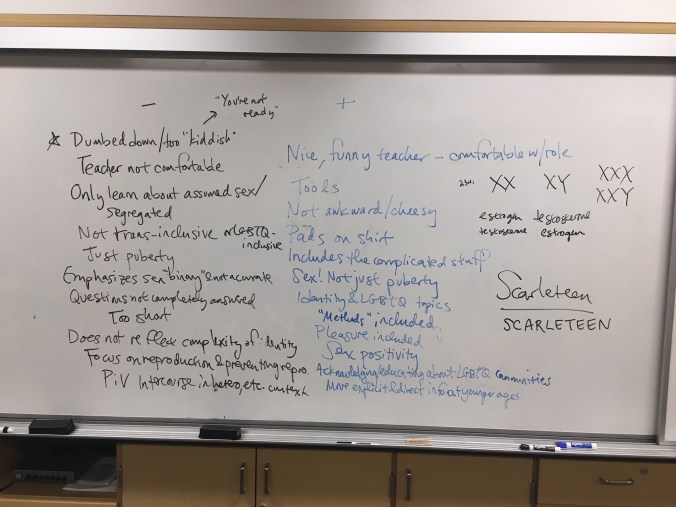 -
"You're not
ready"
Dumbed down/too "kiddish"
Teacher not comfortable
Only learn about assumed sex/
segregated
Not trans-inclusive or LGBTQ-
inclusive
Just puberty
Emphasizes sex "binary" & not accurate
Questions not completely answered
Too short
Does not reflect complexity of identity
Focus on reproduction & preventing repro.
PiV Intercourse in hetero, etc. context
+
Nice, funny teacher - comfortable w/role
Tools
Not awkward/cheesy
Pads on shirt
Includes the complicated stuff
Sex! Not just puberty
Identity & LGBTQ topics
"Methods" included
Pleasure included
Sex positivity
Acknowledging/educating about LGBTQ communities
More explicit & direct info at younger ages
XX XY XXX
XXY
estrogen testosterone
testosterone estrogen
Scarleteen
SCARLETEEN